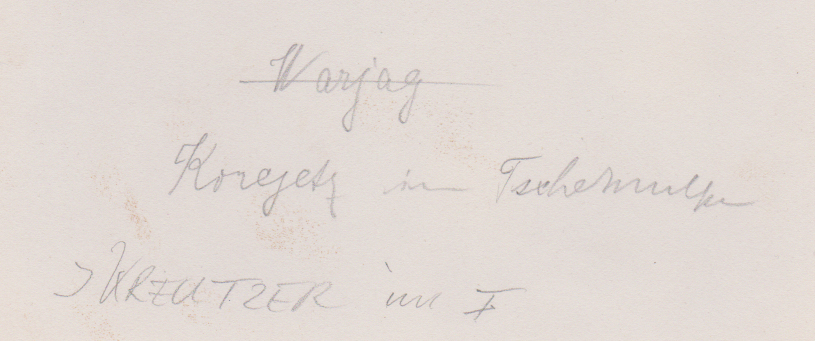 Warjag
Koregetz in Tschemulpu
KREUTZER im